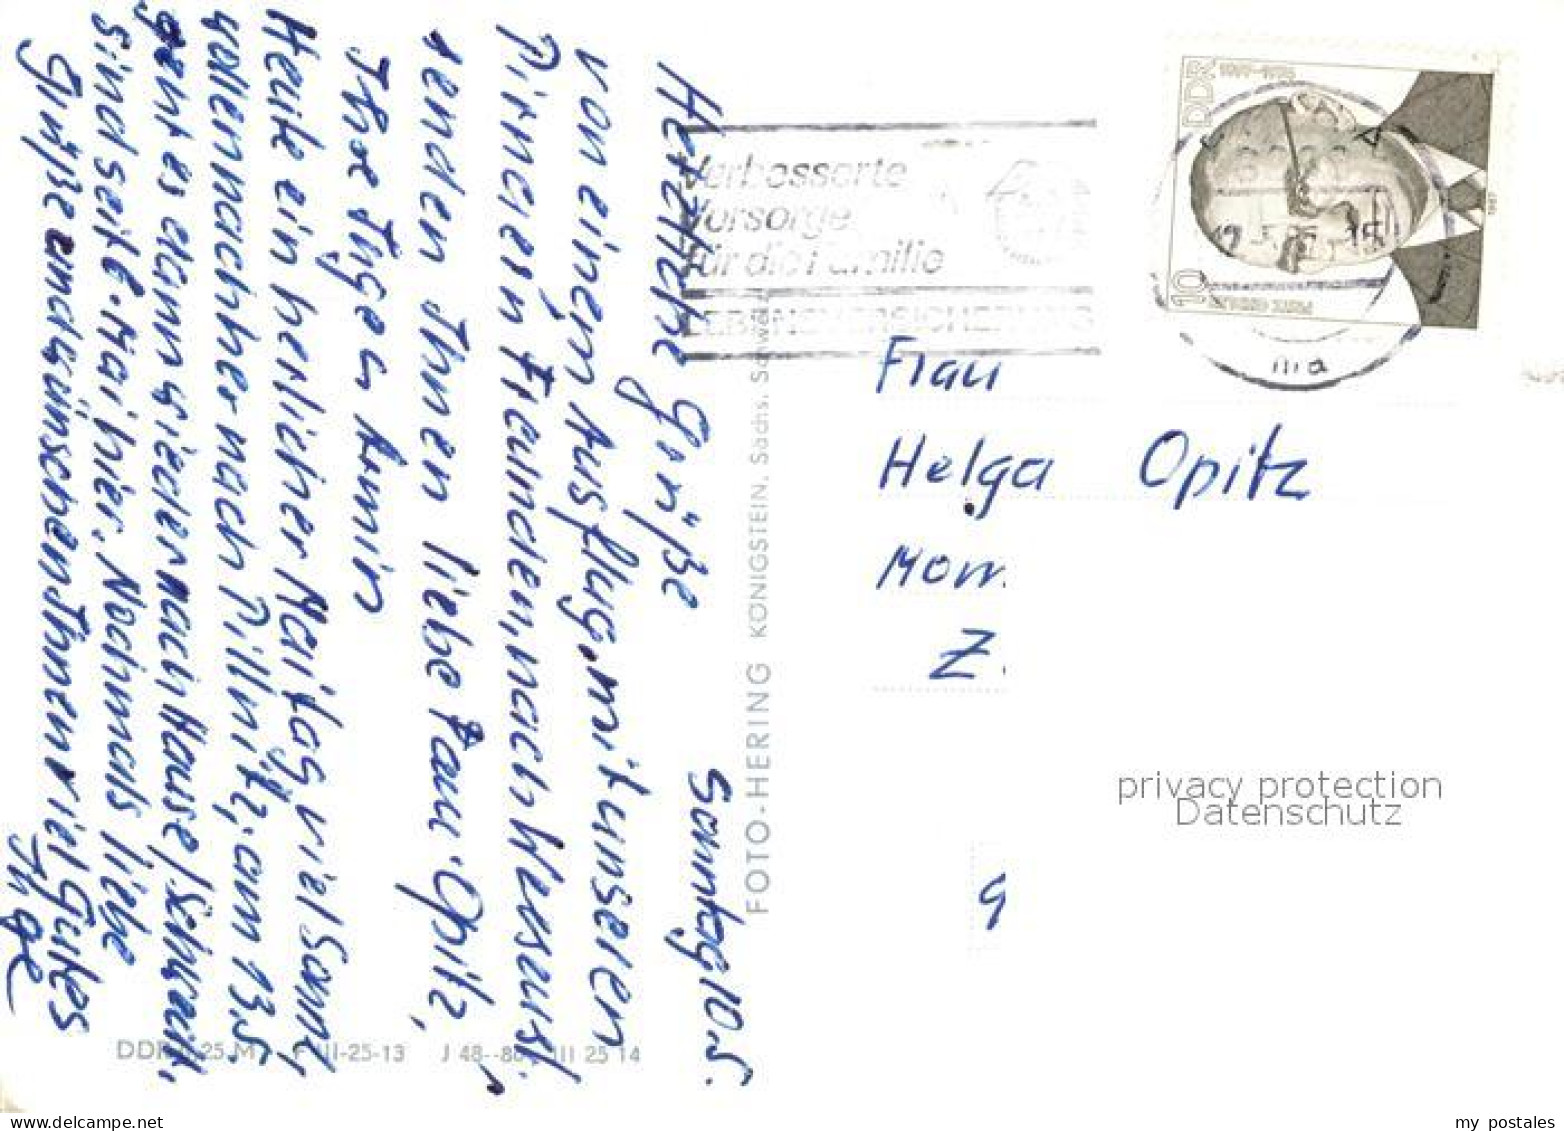 Sonntag, 10.5.
Herzliche Grüße
von einem Ausflug, mit unseren
Pirnaern Freunden, nach Weseust.
senden Ihnen liebe Frau Opitz,
Ihre Inge u Armin
Heute ein herlicher Maitag viel Sonne,
wollen nachher nach Pillnitz, am 13.5.
geht es dann wieder nach Hause,
sind seit 6. Mai hier. Nochmals liebe
Grüße und wünschen Ihnen viel Gutes
Ihre
FOTO-HERING KÖNIGSTEIN, Sächs. Schweiz
DDR 0,25 M III-25-13 J 48--80 III 25 14
Verbesserte
Vorsorge
für die Familie
LEBENSVERSICHERUNG
DDR
10
Frau
Helga Opitz
Z.
9
privacy protection
Datenschutz
my postales